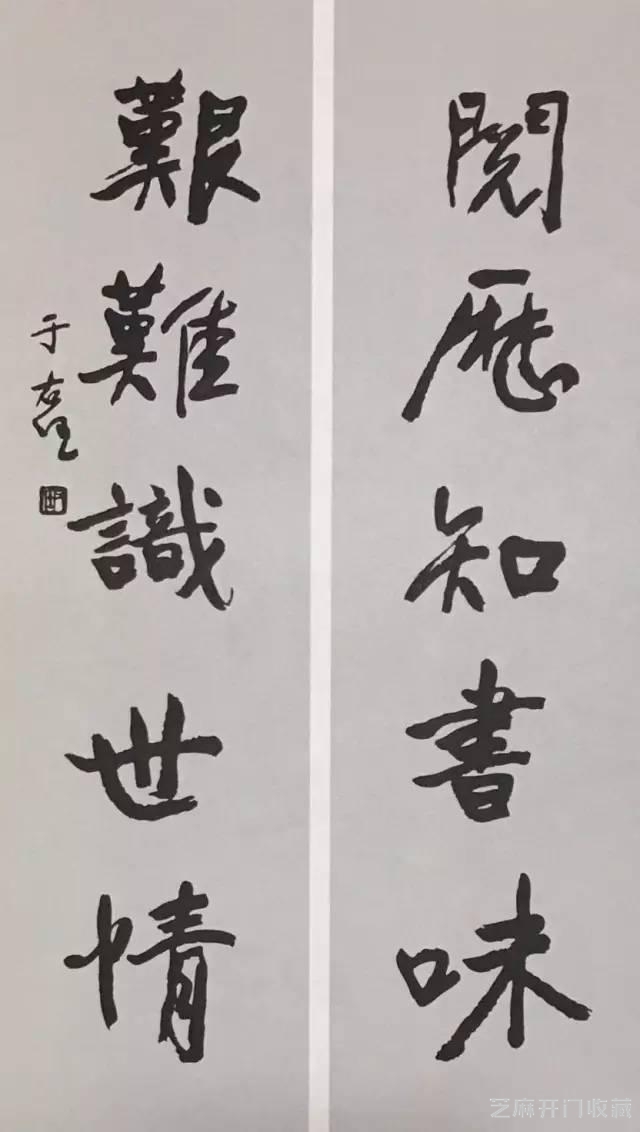 閱歷知書味
艱難識世情
于右任
芝麻开门收藏